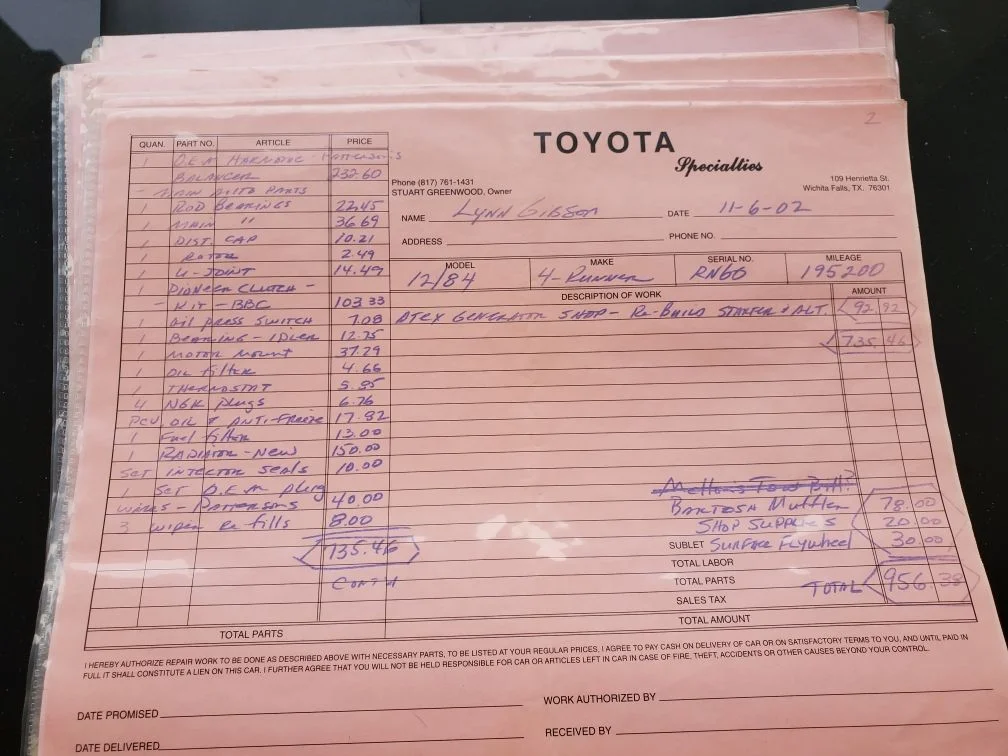 2
TOYOTA
Specialties
Phone (817) 761-1431
STUART GREENWOOD, Owner
109 Henrietta St.
Wichita Falls, TX. 76301
NAME Lynn Gibson DATE 11-6-02
ADDRESS PHONE NO.
MODEL MAKE SERIAL NO. MILEAGE
12/84 4-Runner RN60 195200
QUAN. PART NO. ARTICLE PRICE
1 O.E.M HARMONIC - Patterson's
BALANCER 232.60
- MAIN AUTO PARTS
1 ROD BEARINGS 22.45
1 MAIN " 36.69
1 DIST. CAP 10.21
1 ROTOR 2.49
1 U-JOINT 14.49
1 PIONEER CLUTCH -
- KIT - BBC 103.33
1 OIL PRESS SWITCH 7.08
1 BEARING - IDLER 12.75
1 MOTOR MOUNT 37.29
1 OIL FILTER 4.66
1 THERMOSTAT 5.95
4 NGK Plugs 6.76
PCV, OIL & ANTI-FREEZE 17.92
1 Fuel filter 13.00
1 RADIATOR - New 150.00
SET INJECTOR SEALS 10.00
1 SET O.E.M plug
WIRES - PATTERSONS 40.00
3 WIPER Re-fills 8.00
735.46
CONT'D
TOTAL PARTS
DESCRIPTION OF WORK AMOUNT
ATEX GENERATOR SHOP - Re-BUILD STARTER & ALT. 92.92
735.46
Mellon's Tow Bill?
BARTOSH Muffler 78.00
SHOP SUPPLIES 20.00
SUBLET SURFACE Flywheel 30.00
TOTAL LABOR
TOTAL PARTS TOTAL 956 38
SALES TAX
TOTAL AMOUNT
I HEREBY AUTHORIZE REPAIR WORK TO BE DONE AS DESCRIBED ABOVE WITH NECESSARY PARTS, TO BE LISTED AT YOUR REGULAR PRICES, I AGREE TO PAY CASH ON DELIVERY OF CAR OR ON SATISFACTORY TERMS TO YOU, AND UNTIL PAID IN
FULL IT SHALL CONSTITUTE A LIEN ON THIS CAR. I FURTHER AGREE THAT YOU WILL NOT BE HELD RESPONSIBLE FOR CAR OR ARTICLES LEFT IN CAR IN CASE OF FIRE, THEFT, ACCIDENTS OR OTHER CAUSES BEYOND YOUR CONTROL.
DATE PROMISED WORK AUTHORIZED BY
DATE DELIVERED RECEIVED BY